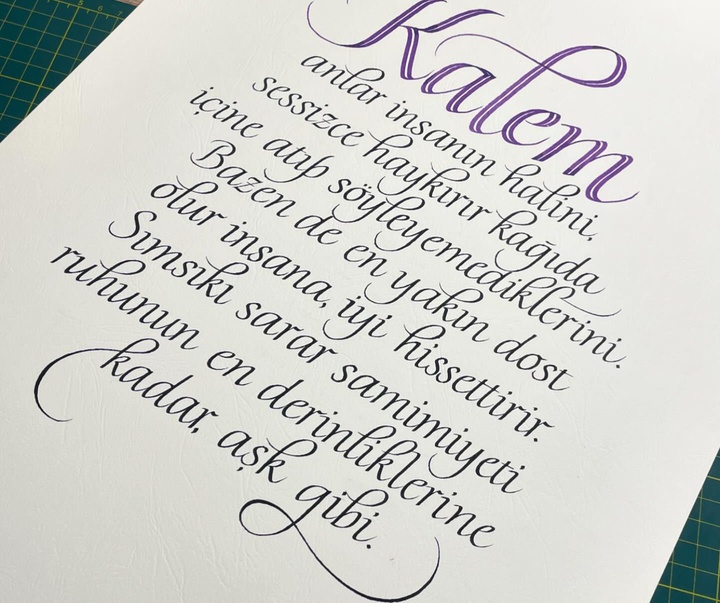 Kalem
anlar insanın halini,
sessizce haykırır kağıda
içine atıp söyleyemediklerini.
Bazen de en yakın dost
olur insana, iyi hissettirir.
Sımsıkı sarar samimiyeti
ruhunun en derinliklerine
kadar, aşk gibi.